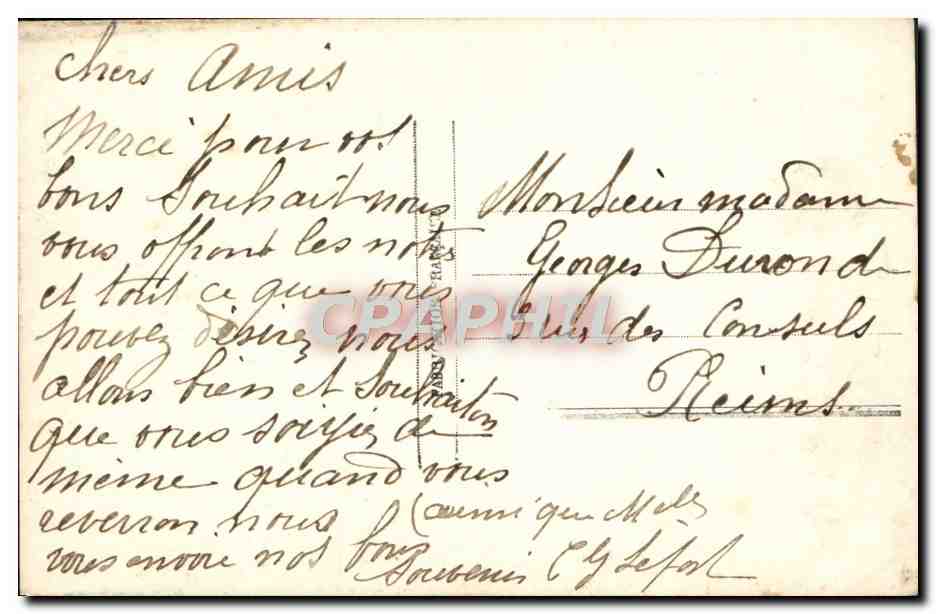 chers Amis
Merci pour vos
bons Souhait nous
vous offront les notres
et tout ce que vous
pouvez désirez nous
allons bien et Souhaiton
que vous soiyiez de
même quand vous
reverron nous (ainsi que Melle
vous envoie nos bons
Souvenir Lefort
FABRICATION FRANÇAISE
Monsieur madame
Georges Durond
rue des Consuls
Reims
CPAPHIL